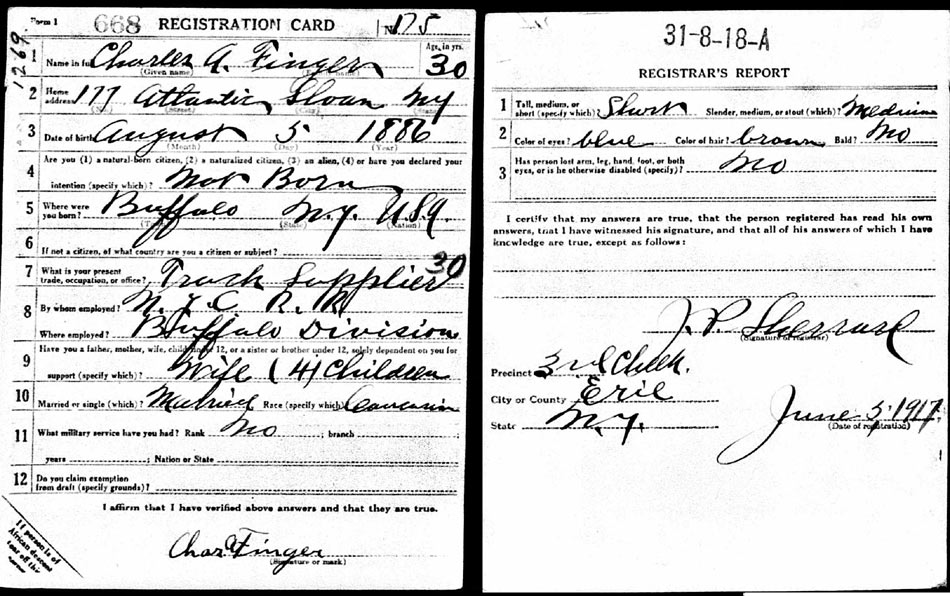 Form 1 668 REGISTRATION CARD No. 175
1269
1 Name in full Charles A. Finger Age, in yrs. 30
(Given name)
2 Home address 177 Atlantic Sloan NY
(No.) (Street) (City) (State)
3 Date of birth August 5 1886
(Month) (Day) (Year)
Are you (1) a natural-born citizen, (2) a naturalized citizen, (3) an alien, (4) or have you declared your
4 intention (specify which)? Nat Born
5 Where were you born? Buffalo N.Y. USA
(Town) (State) (Nation)
6 If not a citizen, of what country are you a citizen or subject?
7 What is your present trade, occupation, or office? Track Supplier 30
8 By whom employed? N.Y.C. R.R.
Where employed? Buffalo Division
9 Have you a father, mother, wife, child under 12, or a sister or brother under 12, solely dependent on you for
support (specify which)? Wife (4) Children
10 Married or single (which)? Married Race (specify which)? Caucasian
11 What military service have you had? Rank No ; branch
years ; Nation or State
12 Do you claim exemption from draft (specify grounds)?
I affirm that I have verified above answers and that they are true.
Chas A Finger
(Signature or mark)
If person is of
African descent
tear off this
corner
31-8-18-A
REGISTRAR'S REPORT
1 Tall, medium, or short (specify which)? Short Slender, medium, or stout (which)? Medium
2 Color of eyes? blue Color of hair? brown Bald? No
3 Has person lost arm, leg, hand, foot, or both eyes, or is he otherwise disabled (specify)? No
I certify that my answers are true, that the person registered has read his own
answers, that I have witnessed his signature, and that all of his answers of which I have
knowledge are true, except as follows:
(Signature of registrar)
Precinct 3rd Cheek.
City or County Erie
State N.Y.
June 5, 1917
(Date of registration)